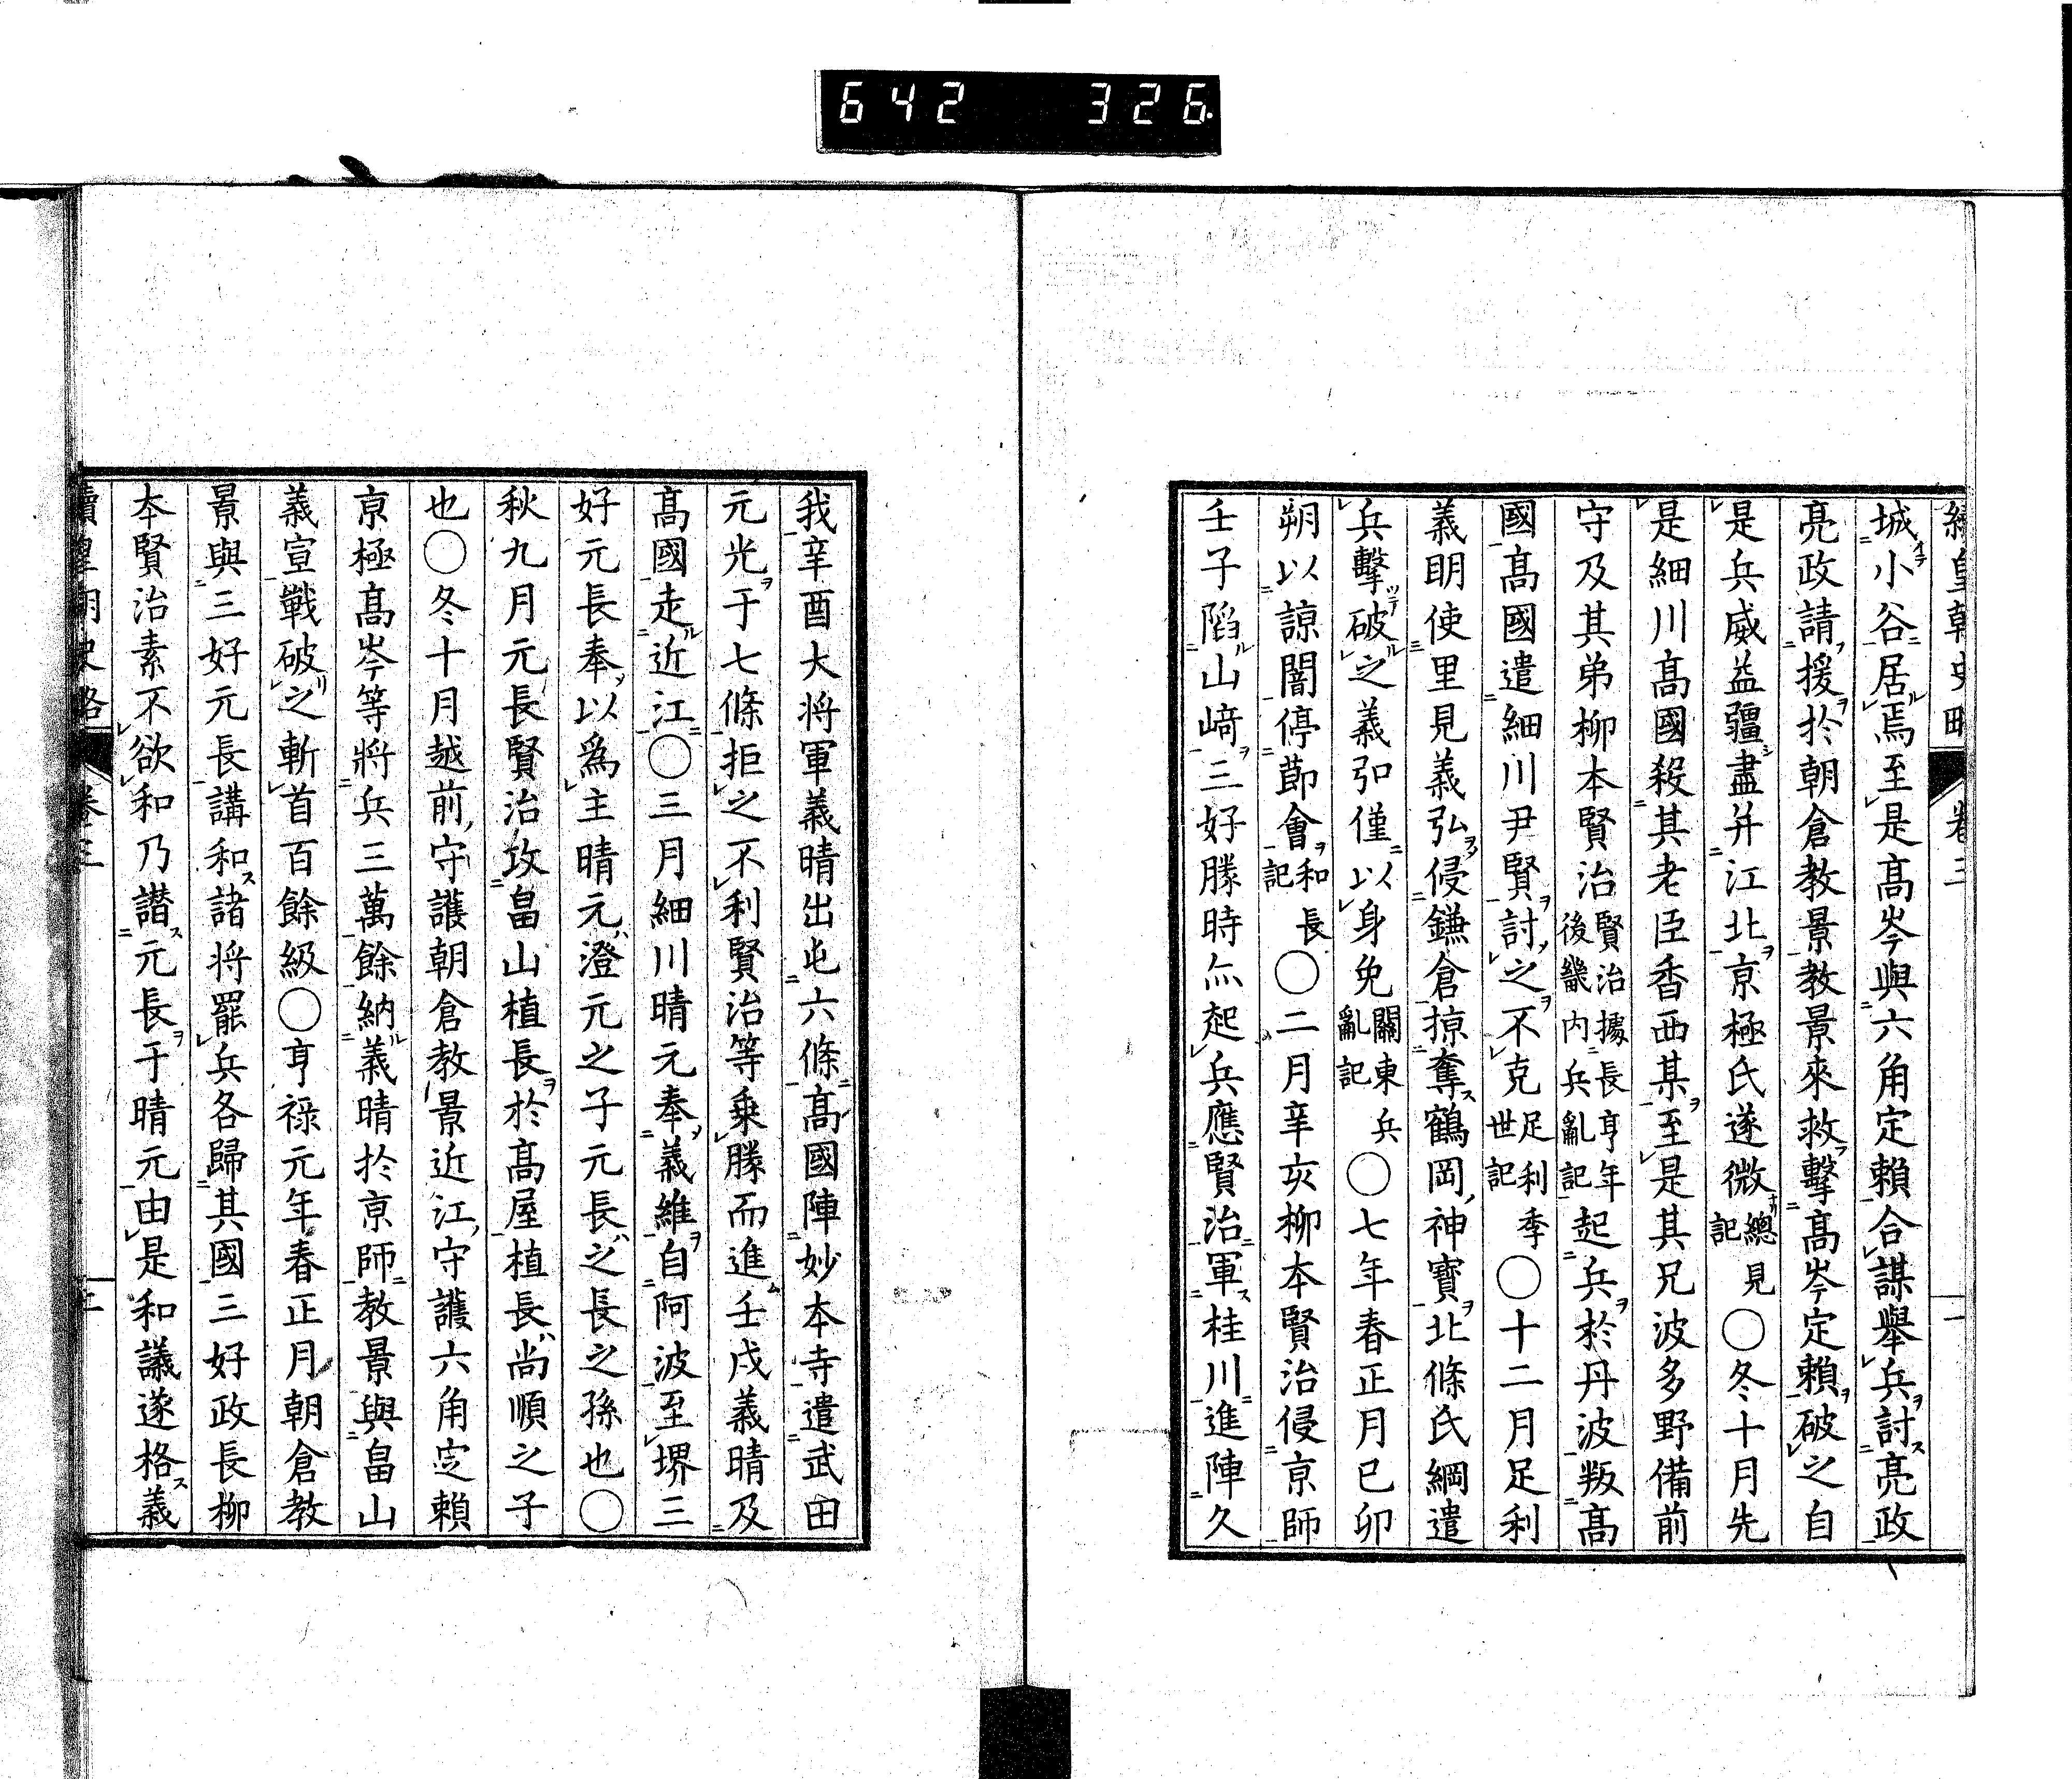 642 326
續皇朝史略 卷三 一
城小谷居焉至是高岑與六角定賴合謀舉兵討亮政
亮政請援於朝倉教景教景來救擊高岑定賴破之自
是兵威益疆盡并江北京極氏遂微總見記○冬十月先
是細川高國殺其老臣香西某至是其兄波多野備前
守及其弟柳本賢治賢治據長亨年後畿內兵亂記起兵於丹波叛高
國高國遣細川尹賢討之不克足利季世記○十二月足利
義明使里見義弘侵鎌倉掠奪鶴岡神寶北條氏綱遣
兵擊破之義弘僅以身免關東兵亂記○七年春正月已卯
朔以諒闇停節會和長記○二月辛亥柳本賢治侵京師
壬子陷山﨑三好勝時亦起兵應賢治軍桂川進陣久
我辛酉大將軍義晴出屯六條高國陣妙本寺遣武田
元光于七條拒之不利賢治等乗勝而進壬戌義晴及
高國走近江○三月細川晴元奉義維自阿波至堺三
好元長奉以爲主晴元澄元之子元長之長之孫也○
秋九月元長賢治攻畠山植長於高屋植長尚順之子
也○冬十月越前守護朝倉教景近江守護六角定賴
京極高岑等將兵三萬餘納義晴於京師教景與畠山
義宣戰破之斬首百餘級○亨祿元年春正月朝倉教
景與三好元長講和諸將罷兵各歸其國三好政長柳
本賢治素不欲和乃譖元長于晴元由是和議遂格義
續皇朝史略 卷三 二